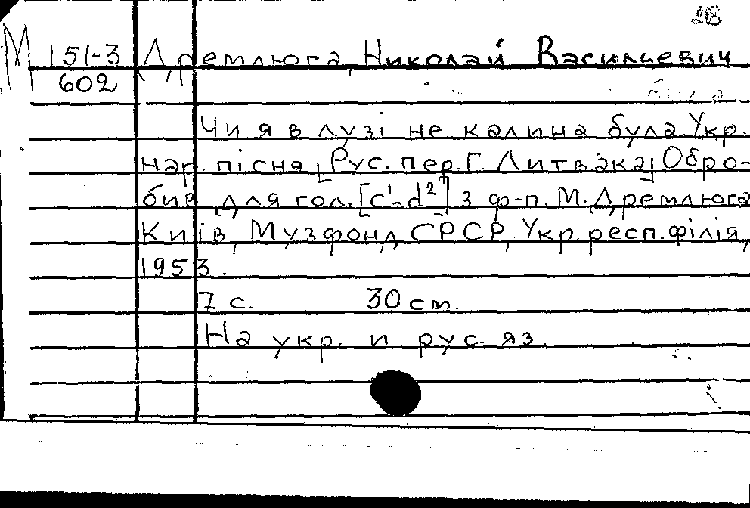 18
М 151-3 Дремлюга, Николай Васильевич
602
Чи я в лузі не калина була. Укр.
нар. пісня. [Рус. пер. Г. Литвака]. Обро-
бив для гол. [c¹-d²] з ф-п. М. Дремлюга
Київ, Музфонд СРСР, Укр. респ. філія,
1953.
7 с. 30 см.
На укр. и рус. яз.